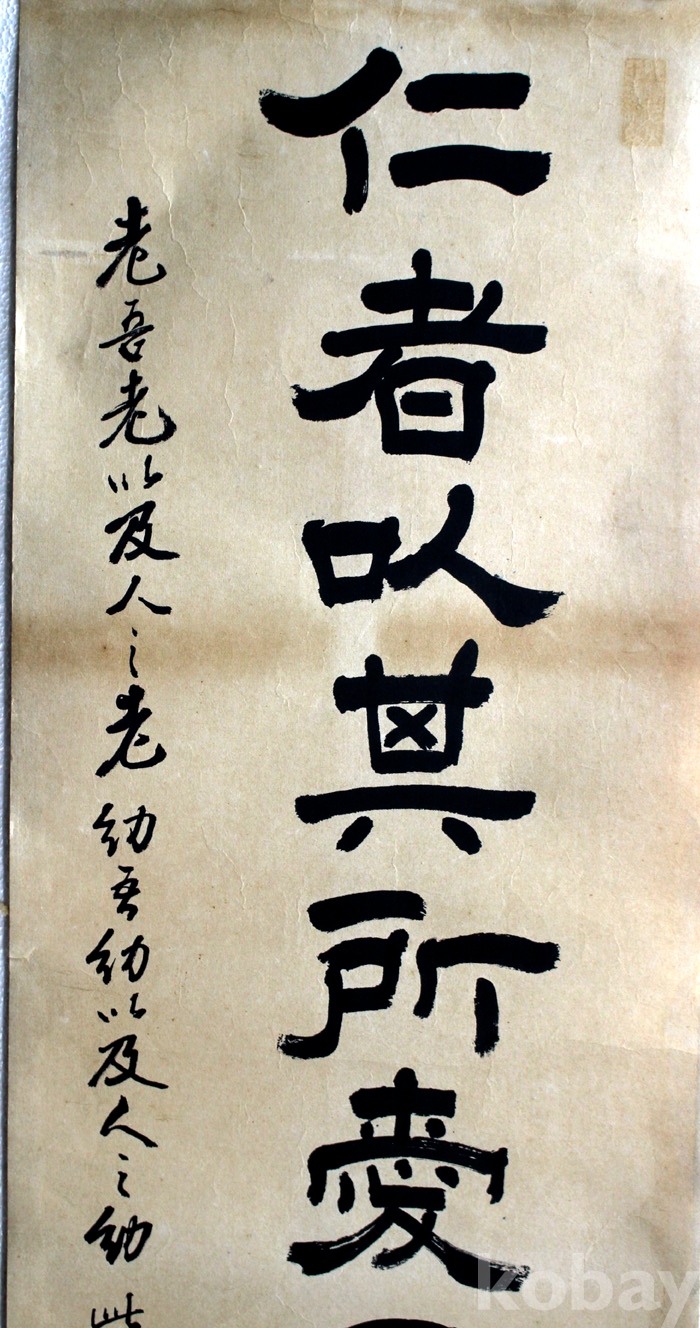 仁者以其所愛
老吾老以及人之老幼吾幼以及人之幼此
kobay